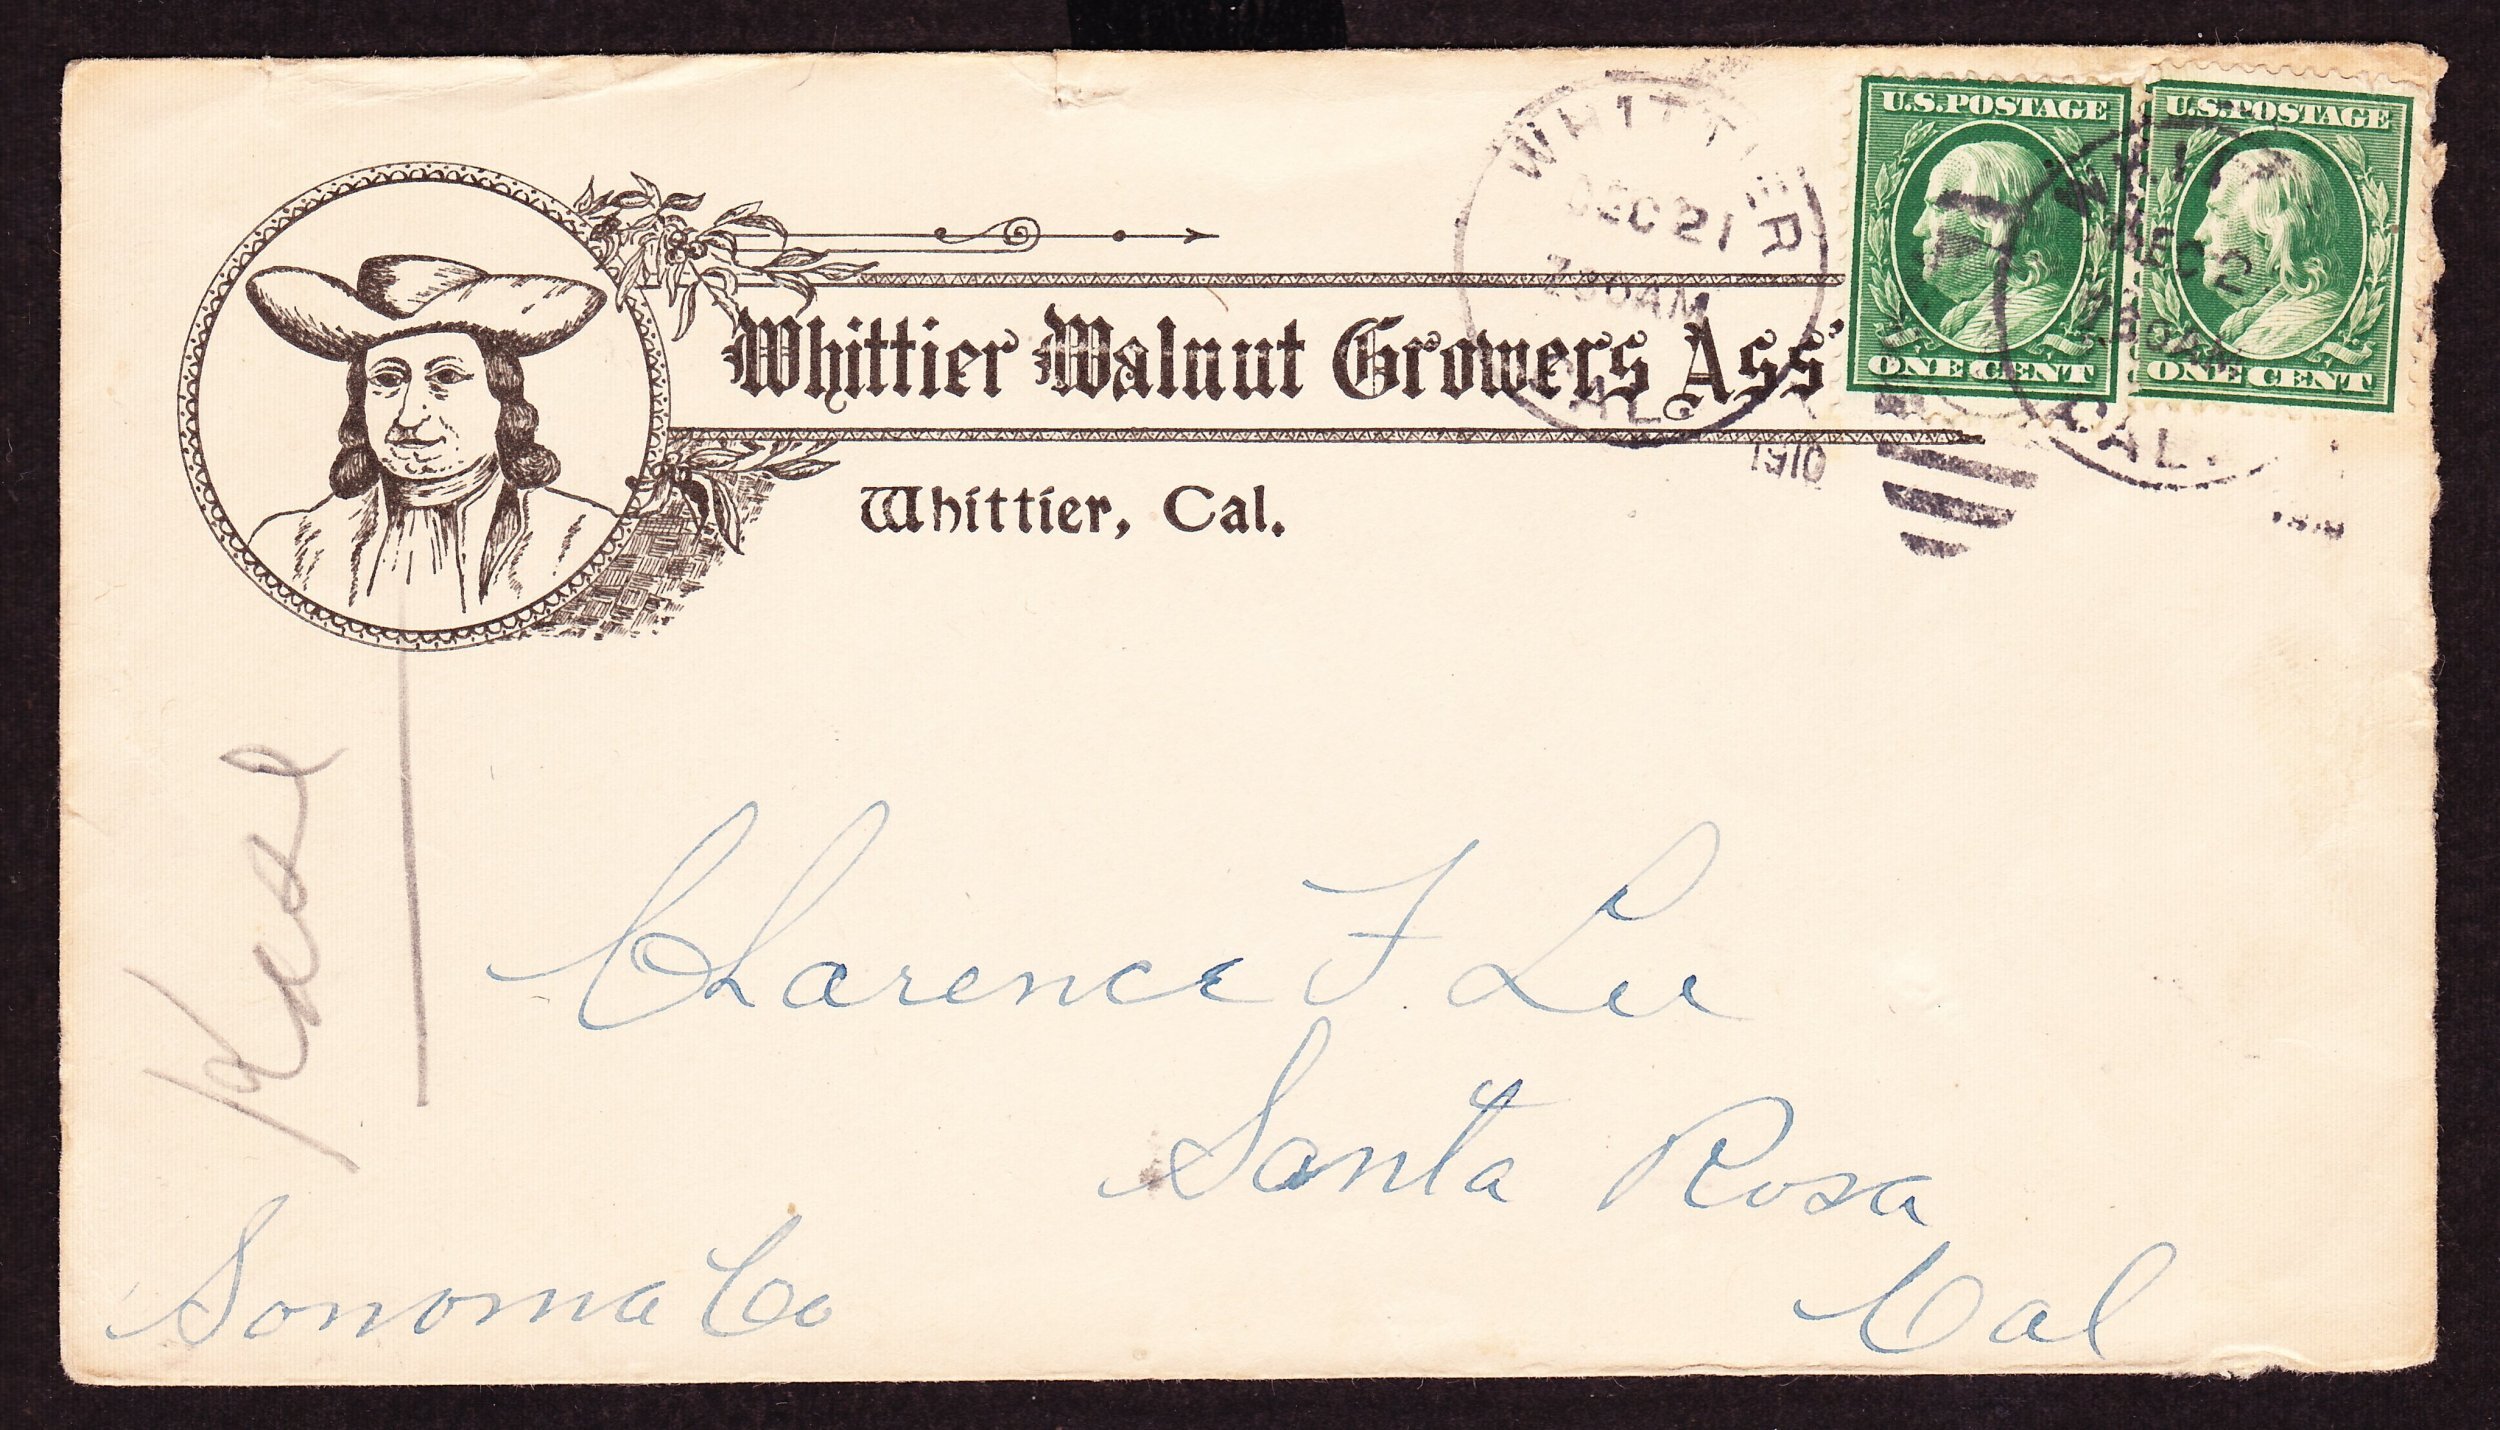 WHITTIER
DEC 21
730AM
CAL.
1910
U.S. POSTAGE
ONE CENT
U.S. POSTAGE
ONE CENT
WHITT
DEC 2
730AM
CAL.
1910
Whittier Walnut Growers Ass'
Whittier, Cal.
Clarence F Lee
Santa Rosa
Sonoma Co
Cal